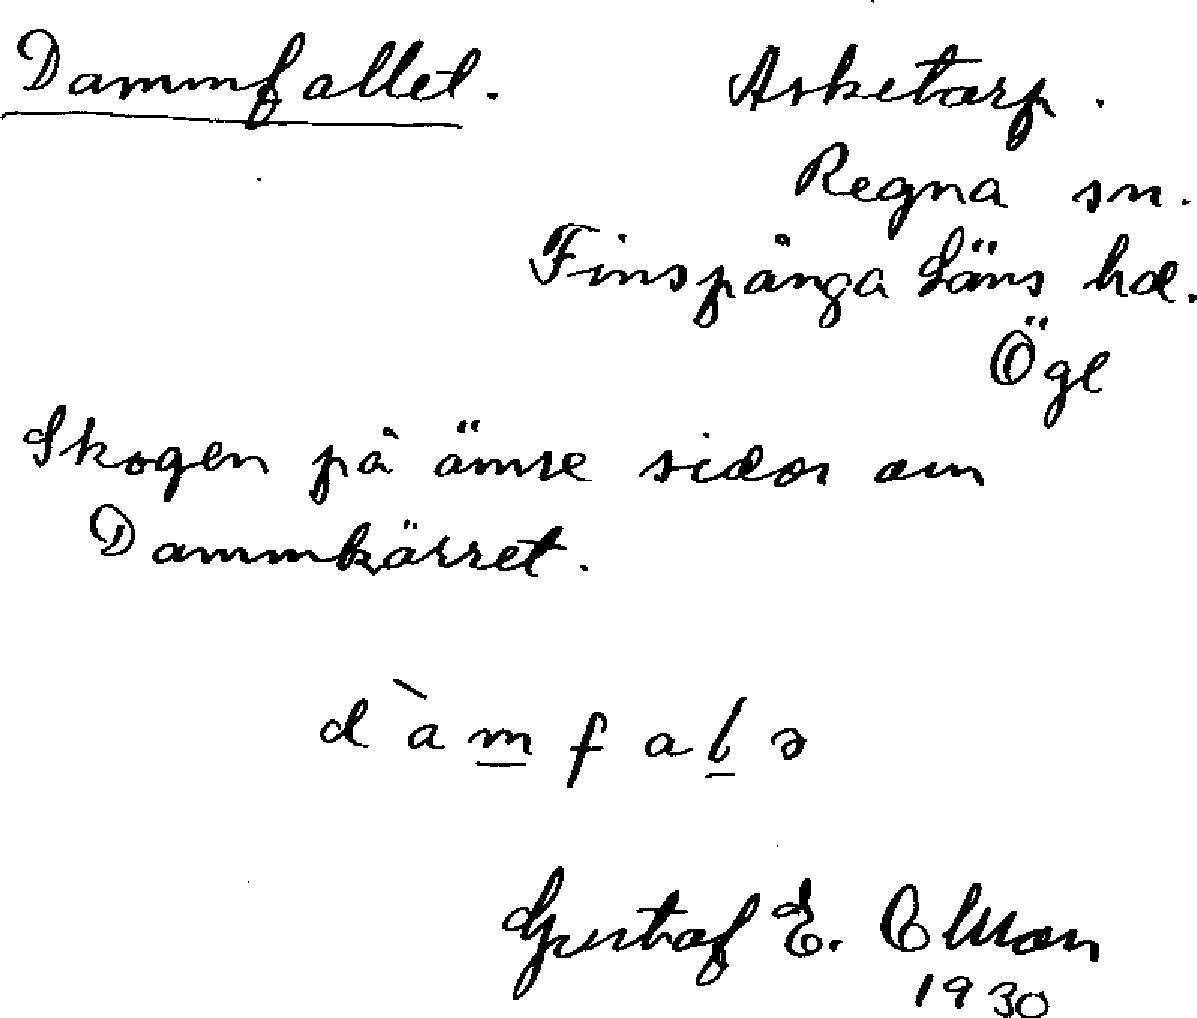 Dammfallet. Asketorp.
Regna sn.
Finspånga Läns hd.
Ögl
Skogen på ömse sidor om
Dammkärret.
dàmfalə
Gustaf E. Olsson
1930